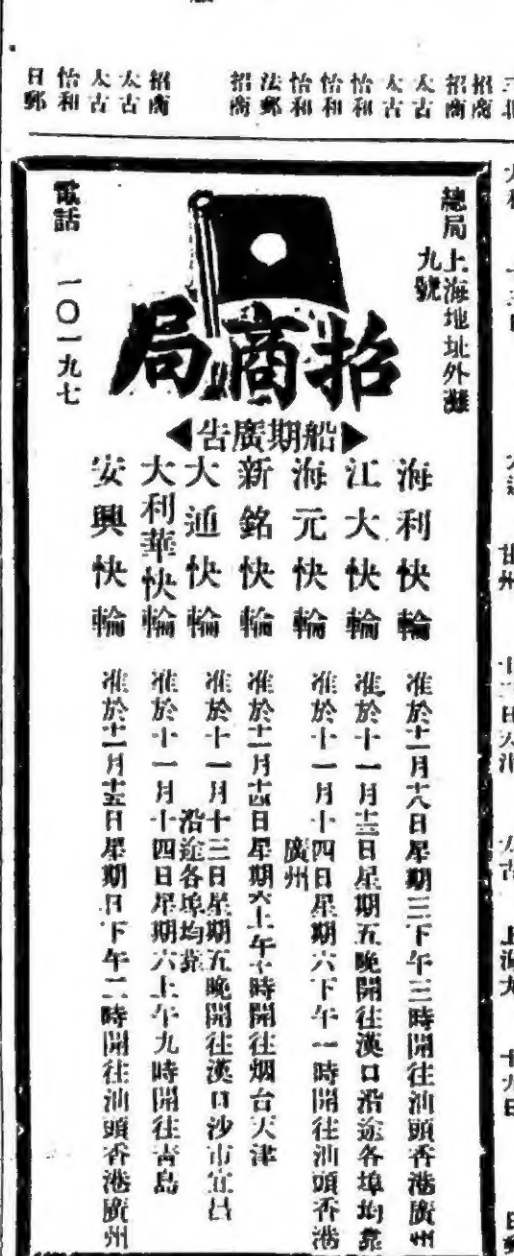 招商
太古
太古
怡和
日郵
招商
招商
太古
太古
怡和
怡和
怡和
法郵
招商
總局上海地址外灘九號
招商局
電話 一〇一九七
船期廣告
海利快輪 准於十一月十八日星期三下午三時開往汕頭香港廣州
江大快輪 准於十一月十三日星期五晚開往漢口沿途各埠均靠
海元快輪 准於十一月十四日星期六下午一時開往汕頭香港廣州
新銘快輪 准於十一月十四日星期六上午十時開往烟台天津
大通快輪 准於十一月十三日星期五晚開往漢口沙市宜昌沿途各埠均靠
大利華快輪 准於十一月十四日星期六上午九時開往青島
安興快輪 准於十一月十五日星期日下午二時開往汕頭香港廣州